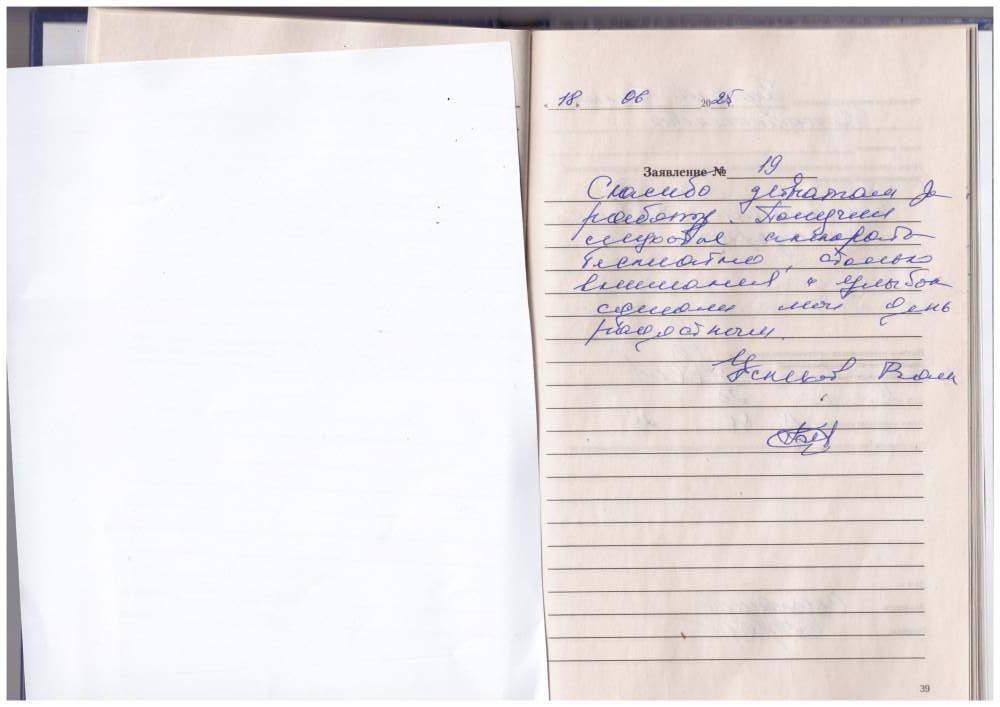 «18» 06 2025 г.
Заявление № 19
Спасибо девчатам за
работу. Получил
слуховые аппараты
бесплатно, столько
внимания и улыбок
сделали мой день
радостным.
Успехов Вам
39